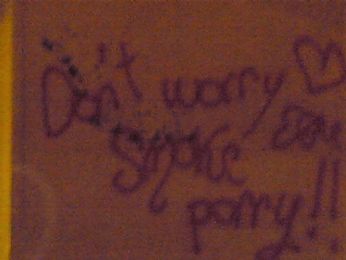 Don't worry ♡
Smoke
porry!!